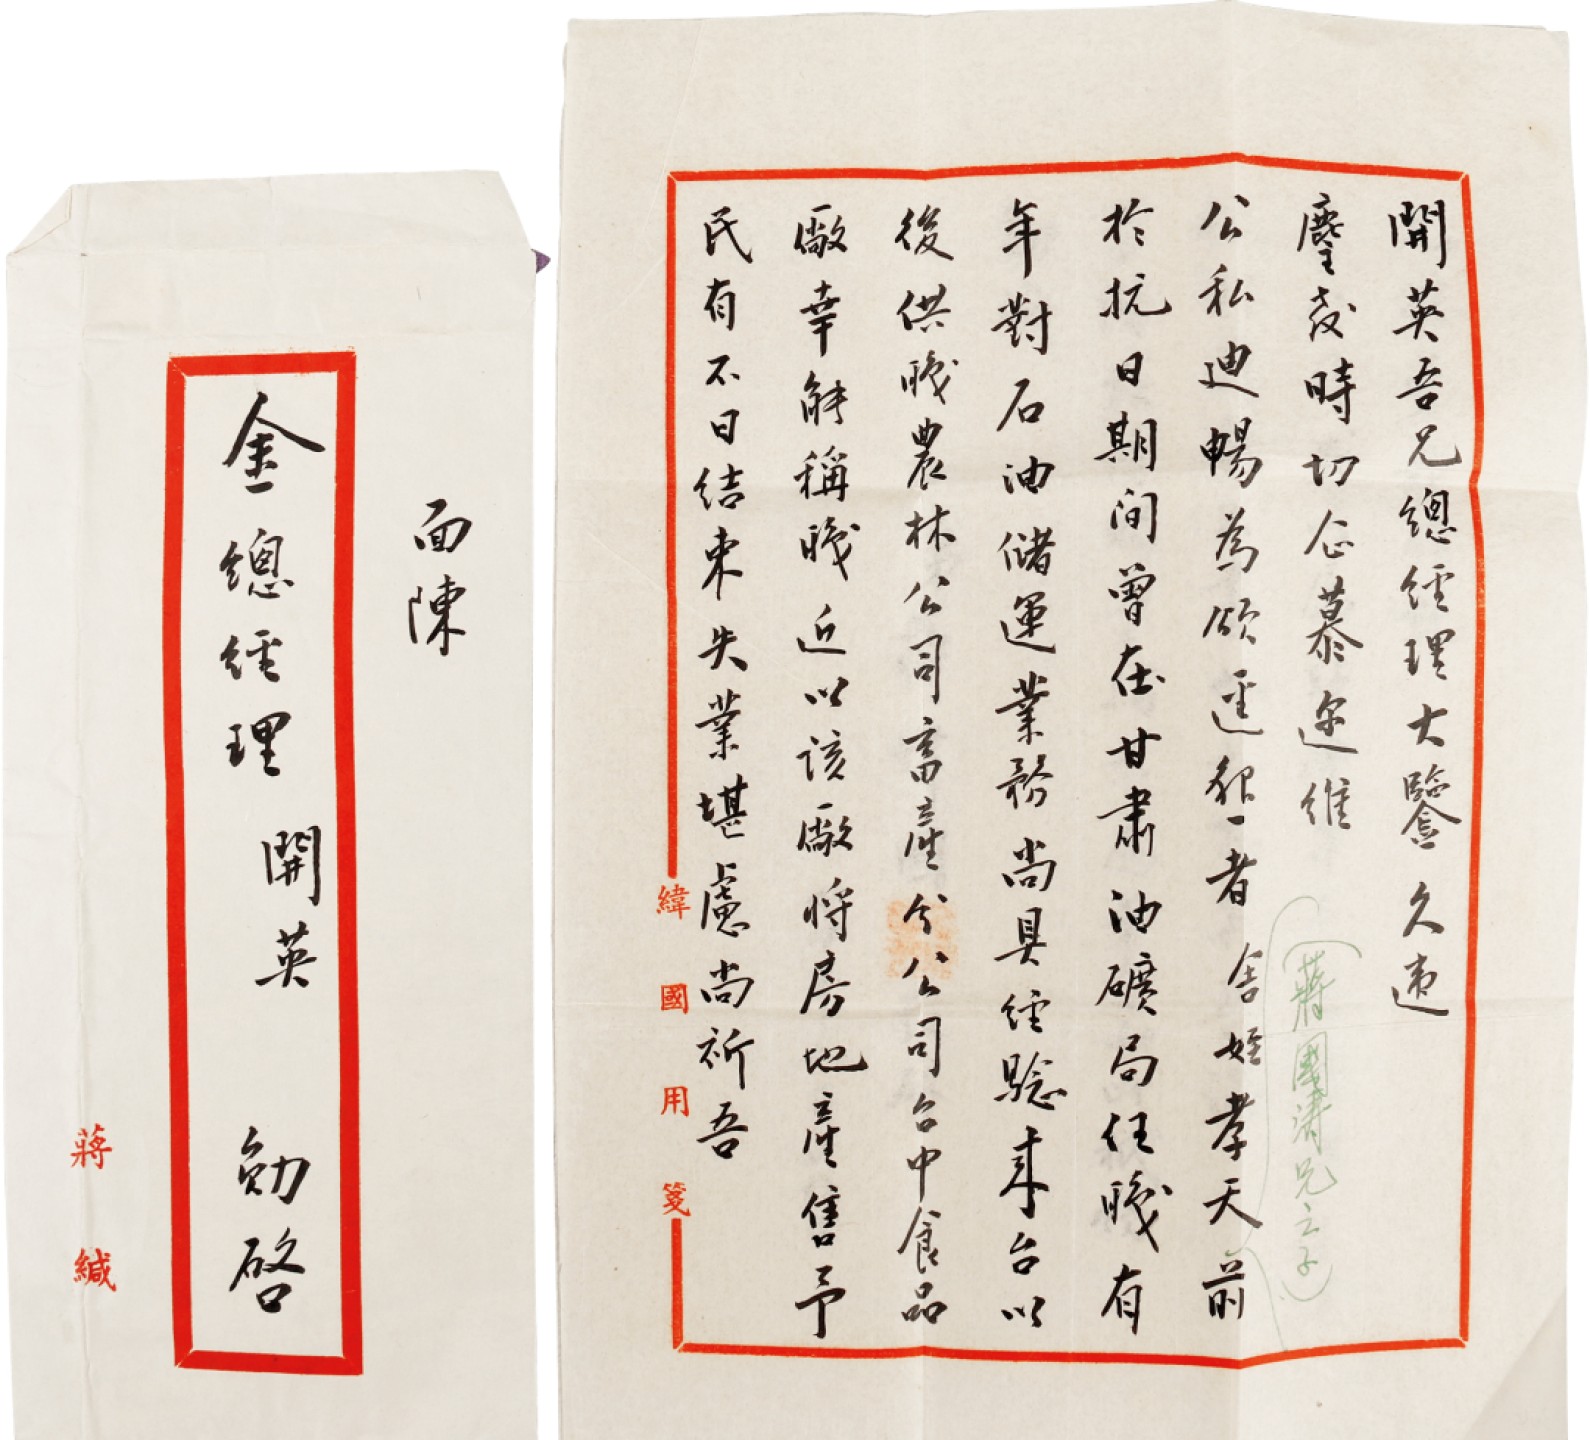 開英吾兄總經理大鑒久違
麈教時切企慕邇維
公私迪暢為頌逕啟者舍姪孝天前
(蔣國濤兄之子)
於抗日期間曾在甘肅油礦局任職有
年對石油儲運業務尚具經驗來台以
後供職農林公司畜產分公司台中食品
廠幸能稱職近以該廠將房地產售予
民有不日結束失業堪慮尚祈吾
緯國用箋
面陳
金總經理 開英 勛啓
蔣緘